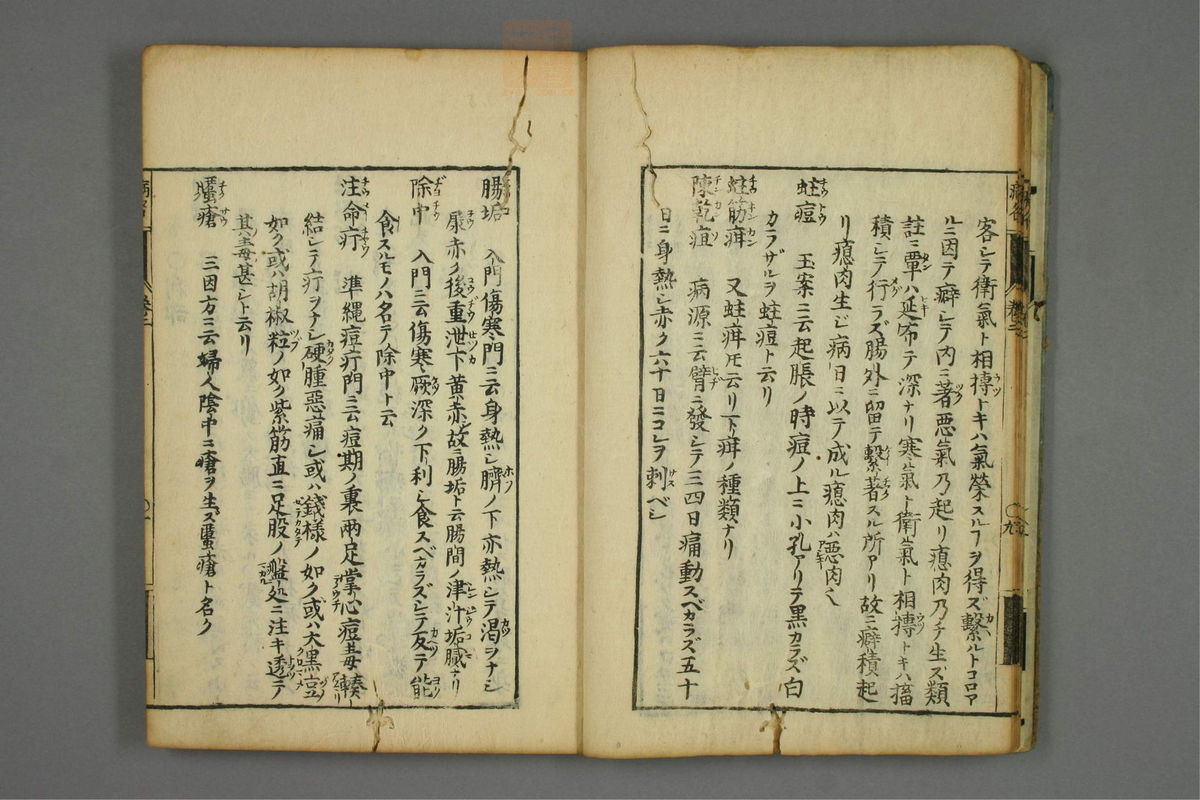 客シテ衛氣ト相搏トキハ氣榮スルヿヲ得ズ繋ルトコロア
ルニ因テ癖シテ内ニ著惡氣乃起リ瘜肉乃チ生ズ類
註ニ覃ハ延布テ深ナリ寒氣ト衛氣ト相搏トキハ
積シテ行ラズ腸外ニ留テ繋著スル所アリ故ニ癖積起
リ瘜肉生ジ病日ニ以テ成ル瘜肉ハ惡肉也
蛀痘 玉案ニ云起脹ノ時痘ノ上ニ小孔アリテ黒カラズ白
カラザルヲ蛀痘ト云リ
蛀筋疳 又蛀疳トモ云リ下疳ノ種類ナリ
陳乾疽 病源ニ云臂ニ發シテ三四日痛動スベカラズ五十
日ニ身熱シ赤ク六十日ニコレヲ刺ベシ
腸垢 入門傷寒門ニ云身熱シ臍ノ下亦熱シテ渇ヲナシ
尿赤ク後重泄下黄赤故ニ腸垢ト云腸間ノ津汁垢膩ナリ
除中 入門ニ云傷寒厥深ク下利シ食スベカラズシテ反テ能
食スルモノハ名テ除中ト云
注命疔 準縄痘疔門ニ云痘期ノ裏兩足掌心痘毒輳
結シテ疔ヲナシ硬腫惡痛シ或ハ錢樣ノ如ク或ハ大黒豆ノ
如ク或ハ胡椒粒ノ如ク紫筋直ニ足股ノ処ニ注キ透テ
其毒甚シト云リ
䘌瘡 三因方ニ云婦人陰中ニ瘡ヲ生ズ䘌瘡ト名ク